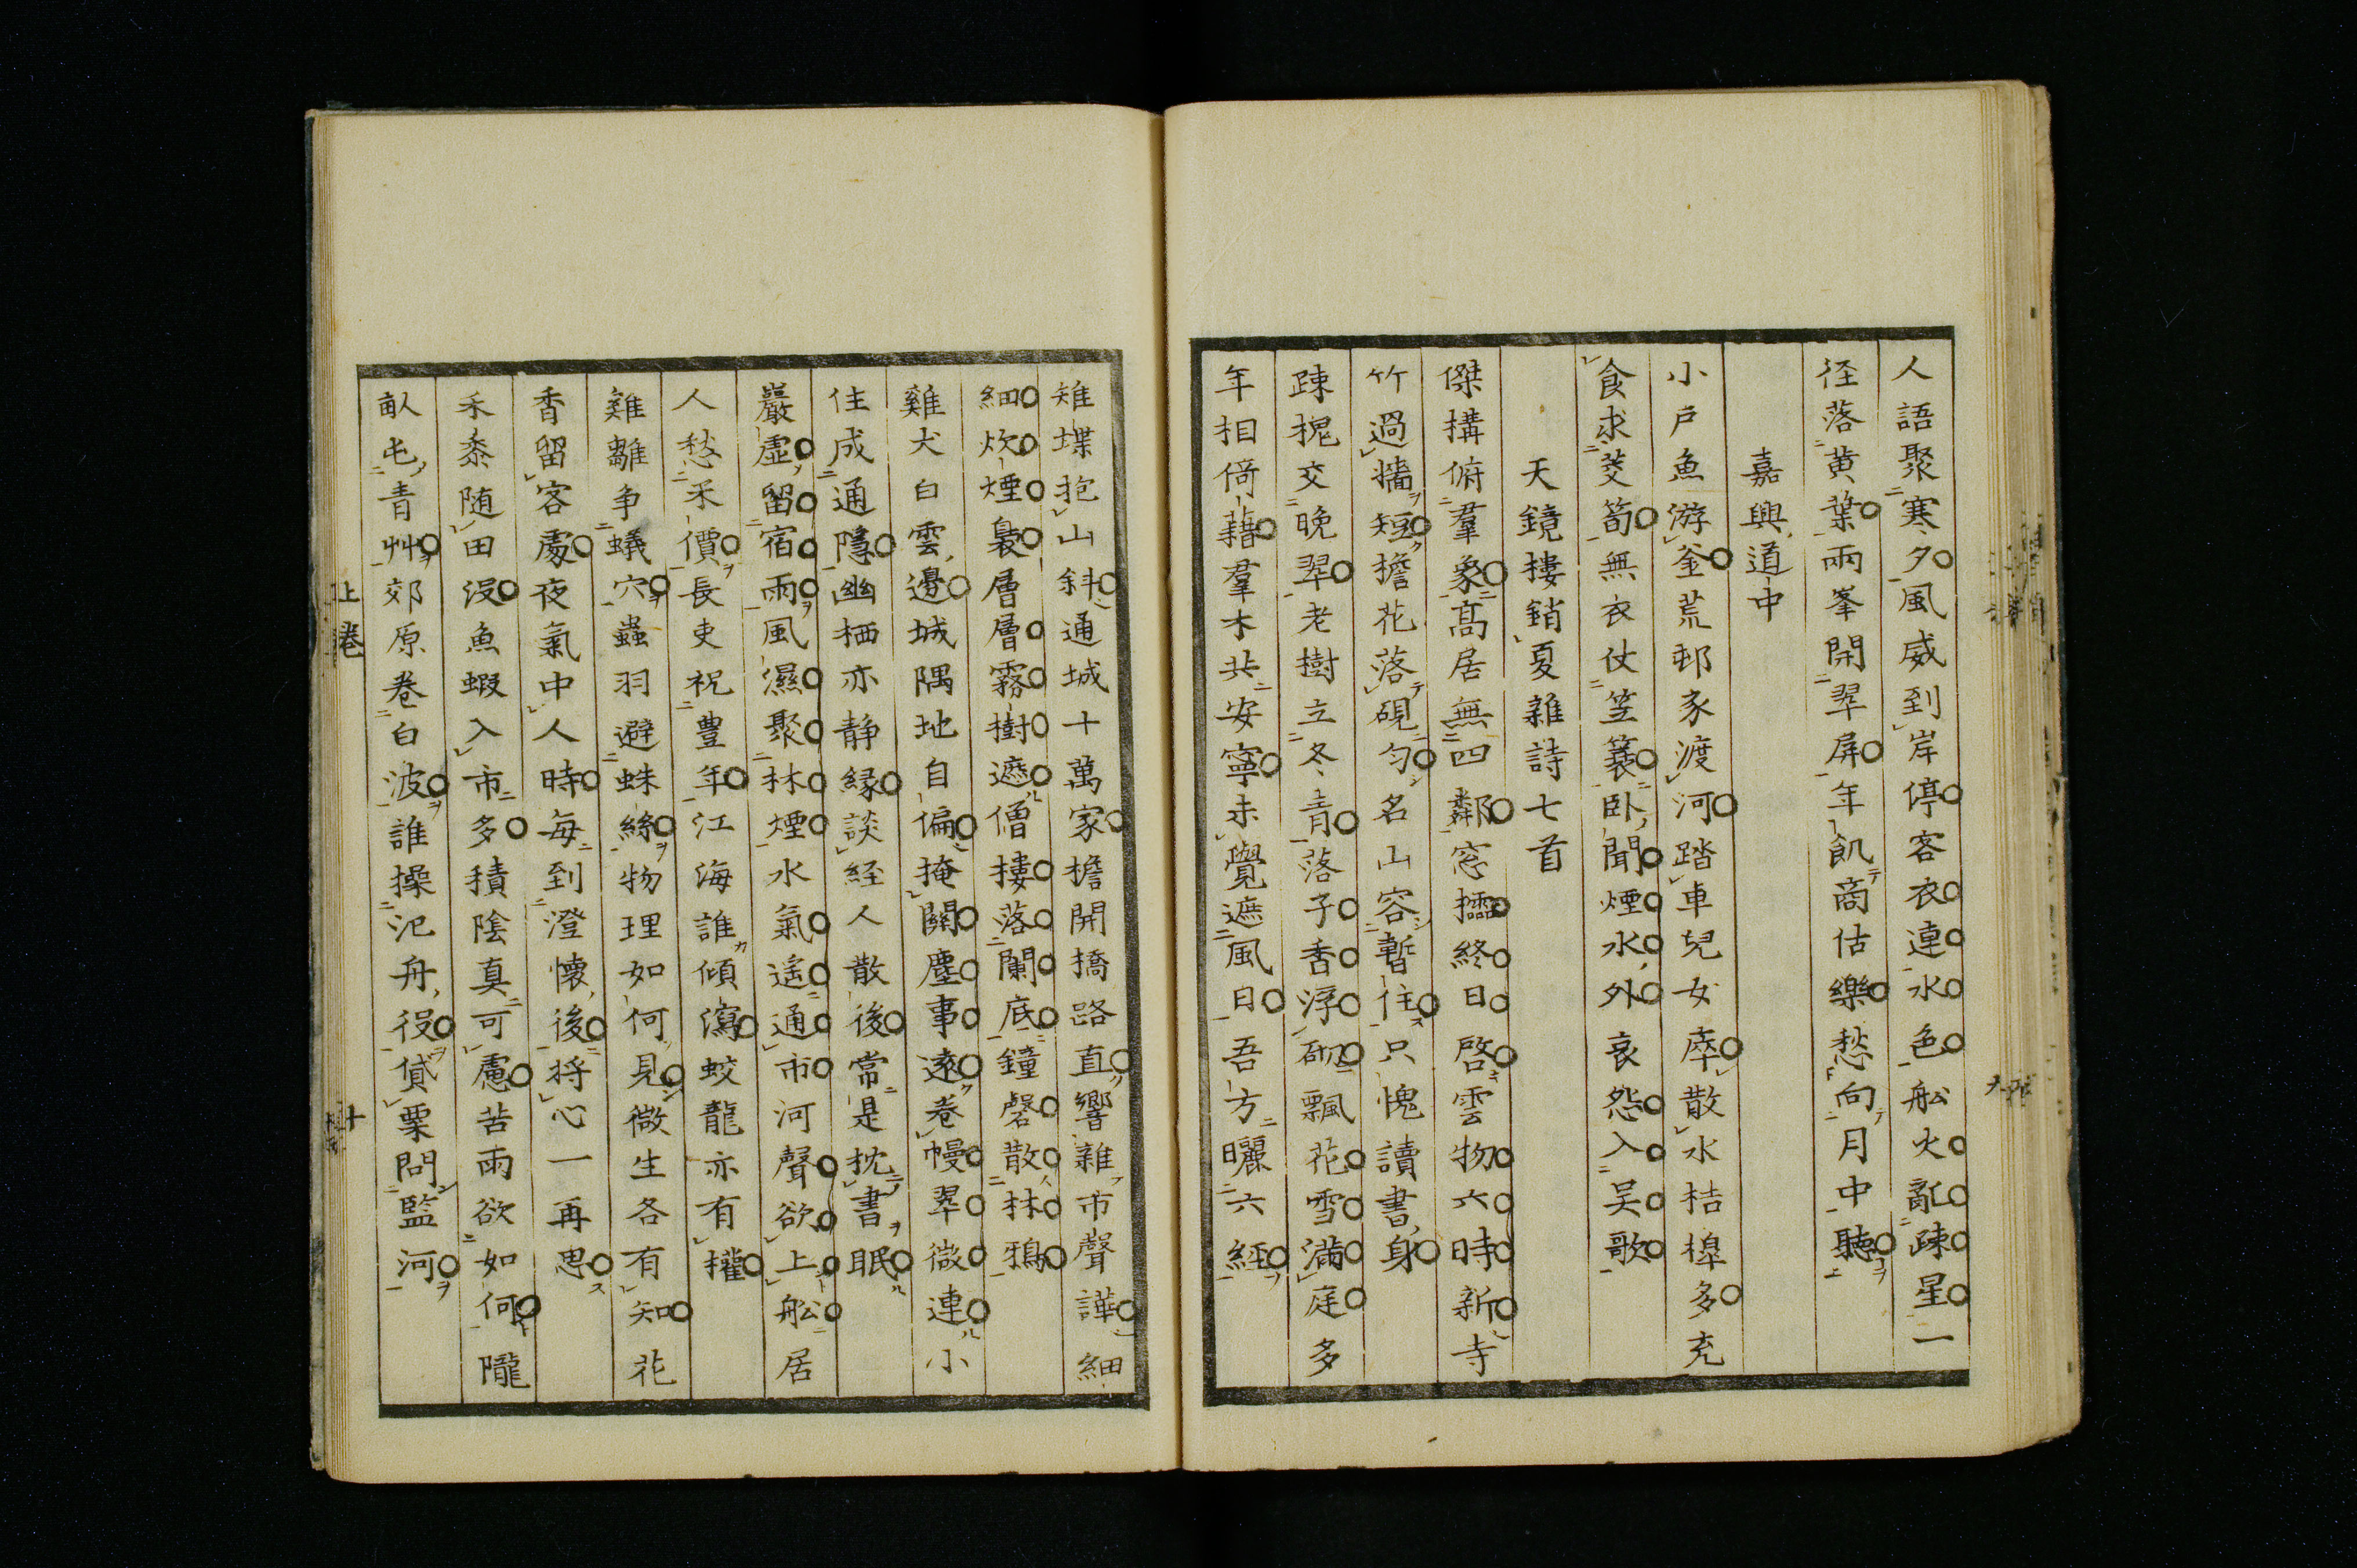 人語聚寒夕風威到岸停客衣連水色舩火亂疎星一
径落黄葉兩峯開翠屏年飢商估樂愁向月中聽
嘉興道中
小戸魚游釜荒邨豕渡河踏車兒女瘁散水桔槹多充
食求茭筍無衣仗笠簑卧聞煙水外哀怨入吴歌
天鏡樓銷夏雜詩七首
傑搆俯羣象高居無四鄰窓櫺終日啓雲物六時新寺
竹過牆短檐花落硯匀名山容暫住只愧讀書身
疎槐交晩翠老樹立冬青落子香浮砌飄花雪滿庭多
年相倚藉羣木共安寧未覺遮風日吾方曬六經
雉堞抱山斜通城十萬家檐開擕路直響雜市聲譁細
細炊煙裊層層霧樹遮僧樓落闌底鐘磬散林鴉
雞犬白雲邊城隅地自偏掩關塵事遠卷幔翠微連小
住成通隱幽栖亦静縁談経人散後常是枕書眠
巖虛留宿雨風濕聚林煙水氣遥通市河聲欲上舩居
人愁米價長吏祝豊年江海誰傾瀉蛟龍亦有權
雞離争蟻穴蟲羽避蛛絲物理如何見微生各有知花
香留客處夜氣中人時毎到澄懐後将心一再思
禾黍随田沒魚蝦入市多積陰真可慮苦雨欲如何隴
畝屯青艸郊原卷白波誰操氾舟役貸粟問監河
上巻
十